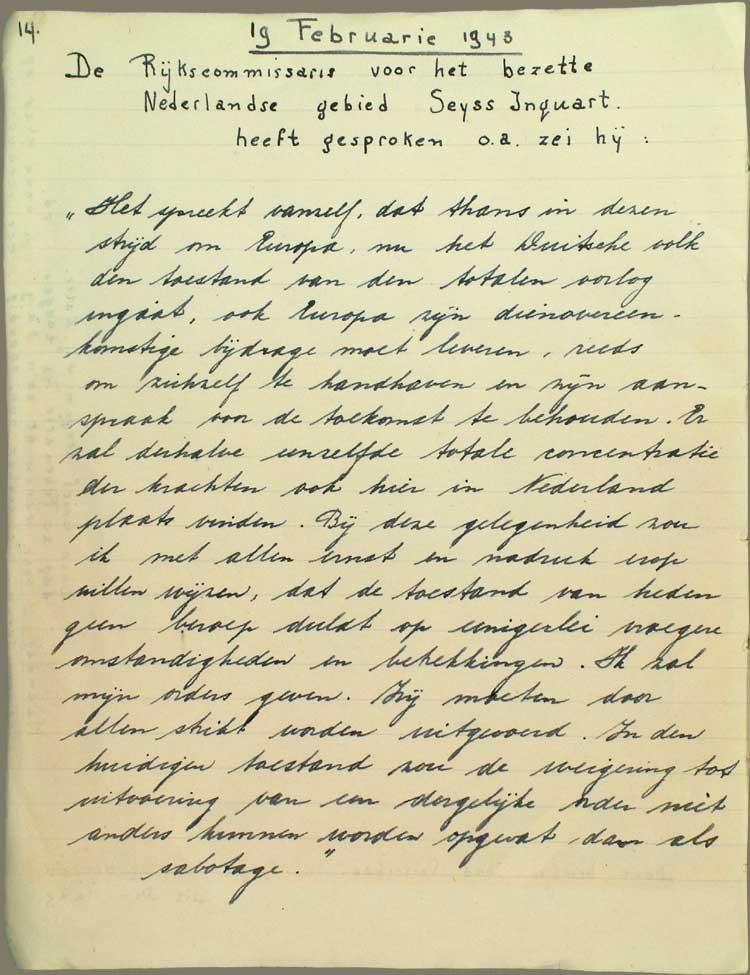 14.
19 Februarie 1943
De Rijkscommissaris voor het bezette
Nederlandse gebied Seyss Inquart.
heeft gesproken o.a. zei hij :
„Het spreekt vanzelf, dat thans in dezen
strijd om Europa, nu het Duitsche volk
den toestand van den totalen oorlog
ingaat, ook Europa zijn dienovereen-
komstige bijdrage moet leveren, reeds
om zichzelf te handhaven en zijn aan-
spraak voor de toekomst te behouden. Er
zal derhalve eenzelfde totale concentratie
der krachten ook hier in Nederland
plaats vinden. Bij deze gelegenheid zou
ik met allen ernst en nadruk erop
willen wijzen, dat de toestand van heden
geen beroep duldt op eenigerlei vroegere
omstandigheden en betrekkingen. Ik zal
mijn orders geven. Zij moeten door
allen strikt worden uitgevoerd. In den
huidigen toestand zou de weigering tot
uitvoering van een dergelijke order niet
anders kunnen worden opgevat dan als
sabotage.”